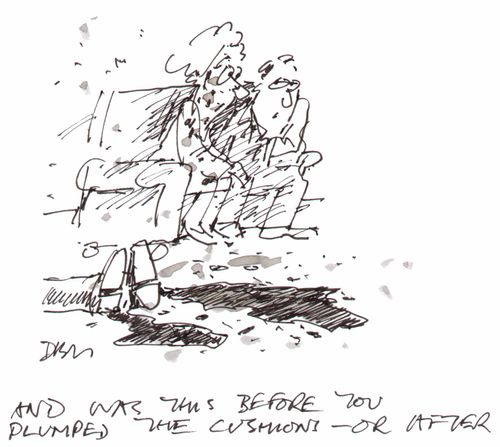 DBM
AND WAS THIS BEFORE YOU
PLUMPED THE CUSHIONS - OR AFTER